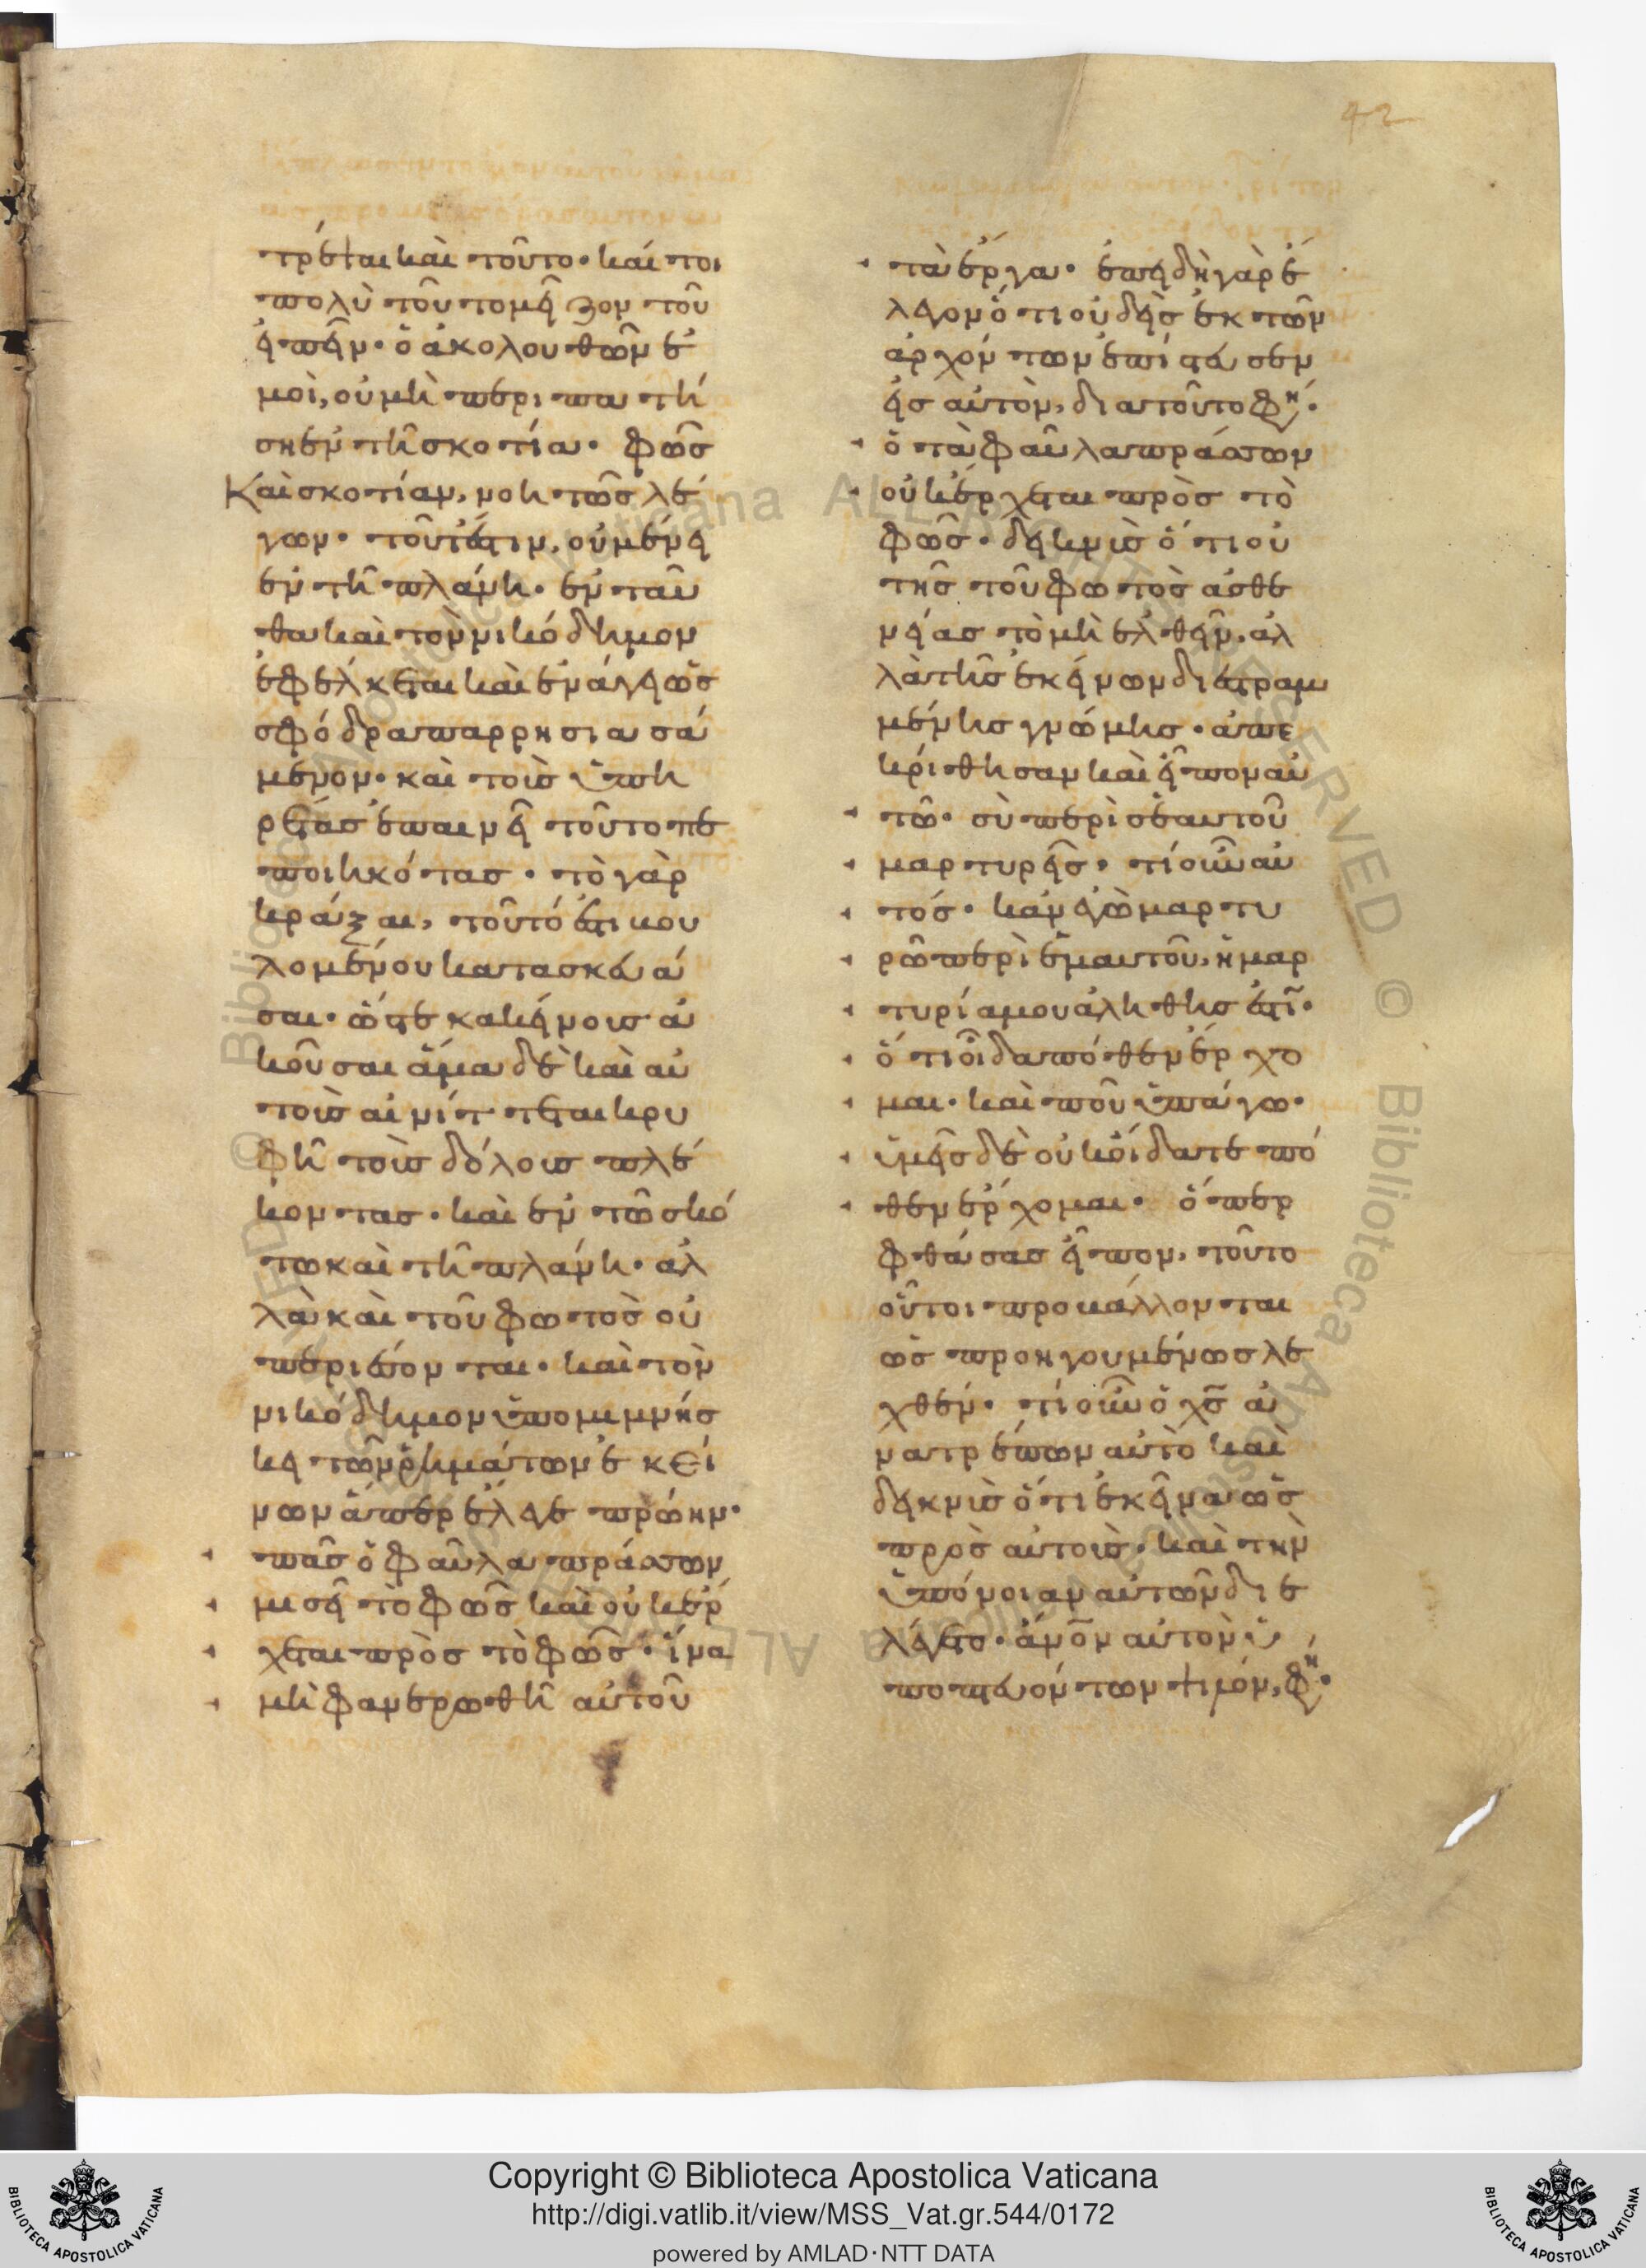 42
τρέπεται καὶ τοῦτο· καί τοι
πολὺ τοῦτο μεῖζον τοῦ
εἰπεῖν· ὁ ἀκολουθῶν ἐ
μοὶ, οὐ μὴ περιπατή
ση ἐν τῆ σκοτία· φῶς
Καὶ σκοτίαν, νοητῶς λέ
γων· τουτέστιν, οὐ μένει
ἐν τῆ πλάνη· ἐνταῦ
θα καὶ τὸν νικόδημον
ἐφέλκεται καὶ ἐνάγει ὡς
σφόδρα παρρησιασά
μενον· καὶ τοὺς ὑπη
ρέτας ἐπαινεῖ τοῦτο πε
ποιηκότας· τὸ γὰρ
κράξαι, τοῦτό ἐστι βου
λομένου κατασκευά
σαι· ὥστε κακείνους ἀ
κοῦσαι ἅμα δὲ καὶ αὐ
τοὺς αἰνίττεται κρυ
φῆ τοὺς δόλους πλέ
κοντας· καὶ ἐν τῶ σκό
τω καὶ τῆ πλάνη· ἀλ
λὰ καὶ τοῦ φωτὸς οὐ
περιέσονται· καὶ τὸν
νικόδημον ὑπομιμνήσ
κει τῶν ῥημάτων ἐκεί
νων ἅπερ ἔλεγε πρώην·
πᾶς ὁ φαῦλα πράσσων
μισεῖ τὸ φῶς καὶ οὐκ ἔρ
χεται πρὸς τὸ φῶς· ἵνα
μὴ φανερωθῆ αὐτοῦ
τὰ ἔργα· ἐπειδὴ γὰρ ἔ
λεγον ὅτι οὐδεὶς ἐκ τῶν
ἀρχόντων ἐπίστευσεν
εἰς αὐτὸν, διατοῦτο φη·
ὁ τὰ φαῦλα πράσσων
οὐκ ἔρχεται πρὸς τὸ
φῶς· δεικνὺς ὅτι οὐ
τῆς τοῦ φωτὸς ἀσθε
νείας τὸ μὴ ἐλθεῖν, ἀλ
λὰ τῆς ἐκείνων διεστραμ
μένης γνώμης· ἀπε
κρίθησαν καὶ εἶπον αὐ
τῶ· σὺ περὶ σεαυτοῦ
μαρτυρεῖς· τί οὖν αὐ
τός· κἀν ἐγὼ μαρτυ
ρῶ περὶ ἐμαυτοῦ, ἡ μαρ
τυρία μου ἀληθής ἐστι·
ὅτι οἶδα πόθεν ἔρχο
μαι· καὶ ποῦ ὑπάγω·
ὑμεῖς δὲ οὐκ οἴδατε πό
θεν ἔρχομαι· ὅπερ
φθάσας εἶπον, τοῦτο
οὗτοι προβάλλονται
ὡς προηγουμένως λε
χθέν· τί οὖν ὁ χς ἀ
νατρέπων αὐτὸ καὶ
δεικνὺς ὅτι ἐκεῖνα ὡς
πρὸς αὐτοὺς· καὶ τὴν
ὑπόνοιαν αὐτῶν διε
λέγετο· ἄνον αὐτὸν ὑ
ποπτευόντων εἶναι μόνον, φη·